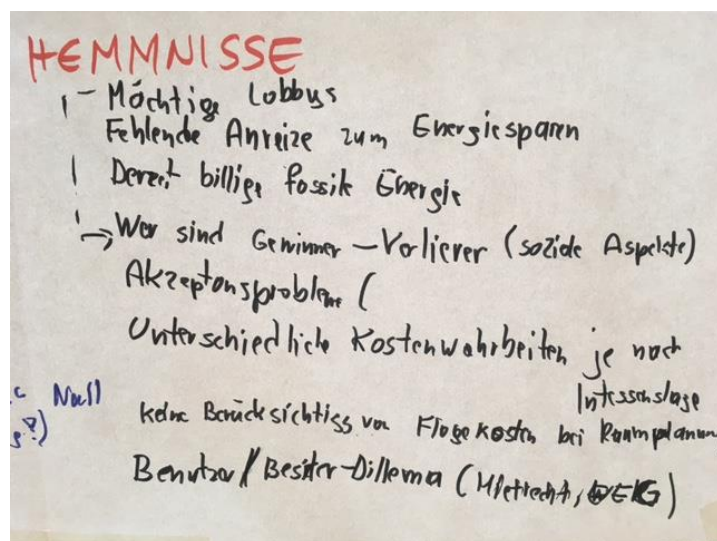 HEMMNISSE
- Mächtige Lobbys
Fehlende Anreize zum Energiesparen
Derzeit billige fossile Energie
→ Wer sind Gewinner - Verlierer (soziale Aspekte)
Akzeptanzprobleme (
Unterschiedliche Kostenwahrheiten je nach
Interessenslage
Null
?)
keine Berücksichtigg von Folgekosten bei Raumplanung
Benutzer / Besitzer-Dillema (Mietrecht, WEG)